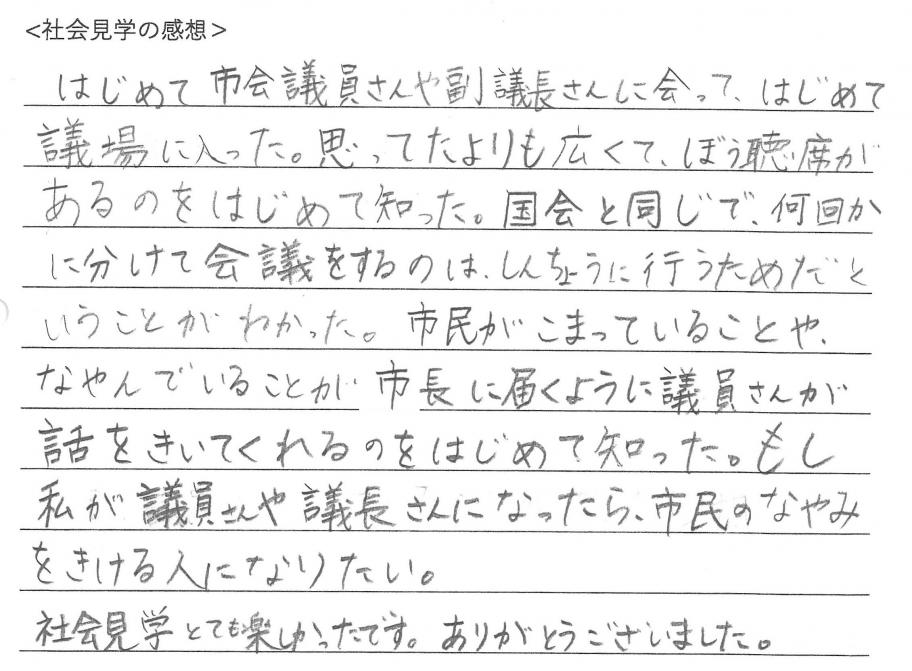 <社会見学の感想>
はじめて市会議員さんや副議長さんに会って、はじめて
議場に入った。思ってたよりも広くて、ぼう聴席が
あるのをはじめて知った。国会と同じで、何回か
に分けて会議をするのは、しんちょうに行うためだと
いうことがわかった。市民がこまっていることや、
なやんでいることが市長に届くように議員さんが
話をきいてくれるのをはじめて知った。もし
私が議員さんや議長さんになったら、市民のなやみ
をきける人になりたい。
社会見学とても楽しかったです。ありがとうございました。